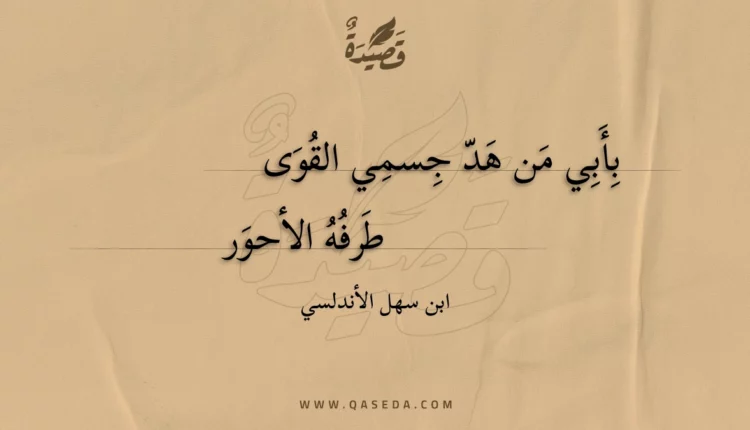 قَصِيدَةٌ
بِأَبِي مَن هَدّ جِسمِي القُوَى
طَرفُهُ الأحوَر
ابن سهل الأندلسي
WWW.QASEDA.COM